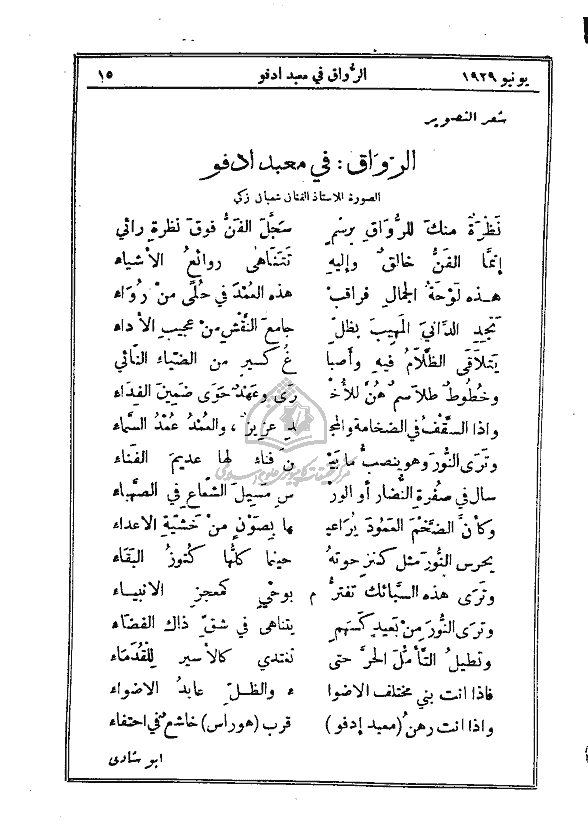 يونيو ١٩٢٩ الرُّواق في معبد ادفو ١٥
شعر التصوير
الرّوَاق: في معبد ادفو
الصورة للاستاذ الفنان شعبان زكي
نَظْرَةً منكَ للرُّواقِ برَسْمٍ سَجَّلَ الفنُّ فوقَ نظرةِ رائي
إنَّما الفنُّ خالقٌ وإليهِ تَتَنَاهَى روائعُ الأشياء
هذه لَوْحَةُ الجمالِ فراقبْ هذه العُمْدَ في حُلًى منْ رُوَاء
تَجِدِ الدَّانيَ المهيبَ بظلٍّ جامعَ النَّقْشِ منْ عجيبِ الأداء
يتلاقى الظَّلامُ فيه وأصبا غُ كسيرٍ من الضياء النَّائي
وخُطُوطٌ طلاسمٌ هُنَّ للأُخْ رَى وعَهْدٌ حَوَى ضمينَ الفِداء
واذا السَّقْفُ في الضخامةِ والمجْ دِ عزيزٌ، والعُمْدُ عُمْدُ السَّماء
وتَرَى النُّورَ وهو ينصبُّ ما بَيْ نِ فناءٍ لها عديمَ الفناء
سال في صُفْرةِ النُّضارِ أو الوَرْ سِ مَسيلَ الشُّعاعِ في الصَّهْباء
وكأنَّ الضَّخْمَ العمودَ يُراعيـ ـها بصَوْنٍ منْ خَشْيَةِ الاعداء
يحرس النُّورَ مثلَ كنزٍ حوتهُ حينما كلُّها كُنُوزُ البقَاء
وتَرَى هذه السَّبائكَ تفترُّ م بوحْيٍ كمعجزِ الانبياء
وترى النُّورَ مِنْ بعيدٍ كسَهمٍ يتناهَى في شقِّ ذاك الفضَاء
وتطيلُ التَّأمُّلَ الحرَّ حتى تغتدي كالأسيرِ للقُدَمَاء
فاذا انت بني مختلف الاضوا ء والظلِّ عابدُ الاضواء
واذا انت رهنُ (معبد إدفو) قرب (هوراس) خاشعٌ في احتفاء
ابو شادى